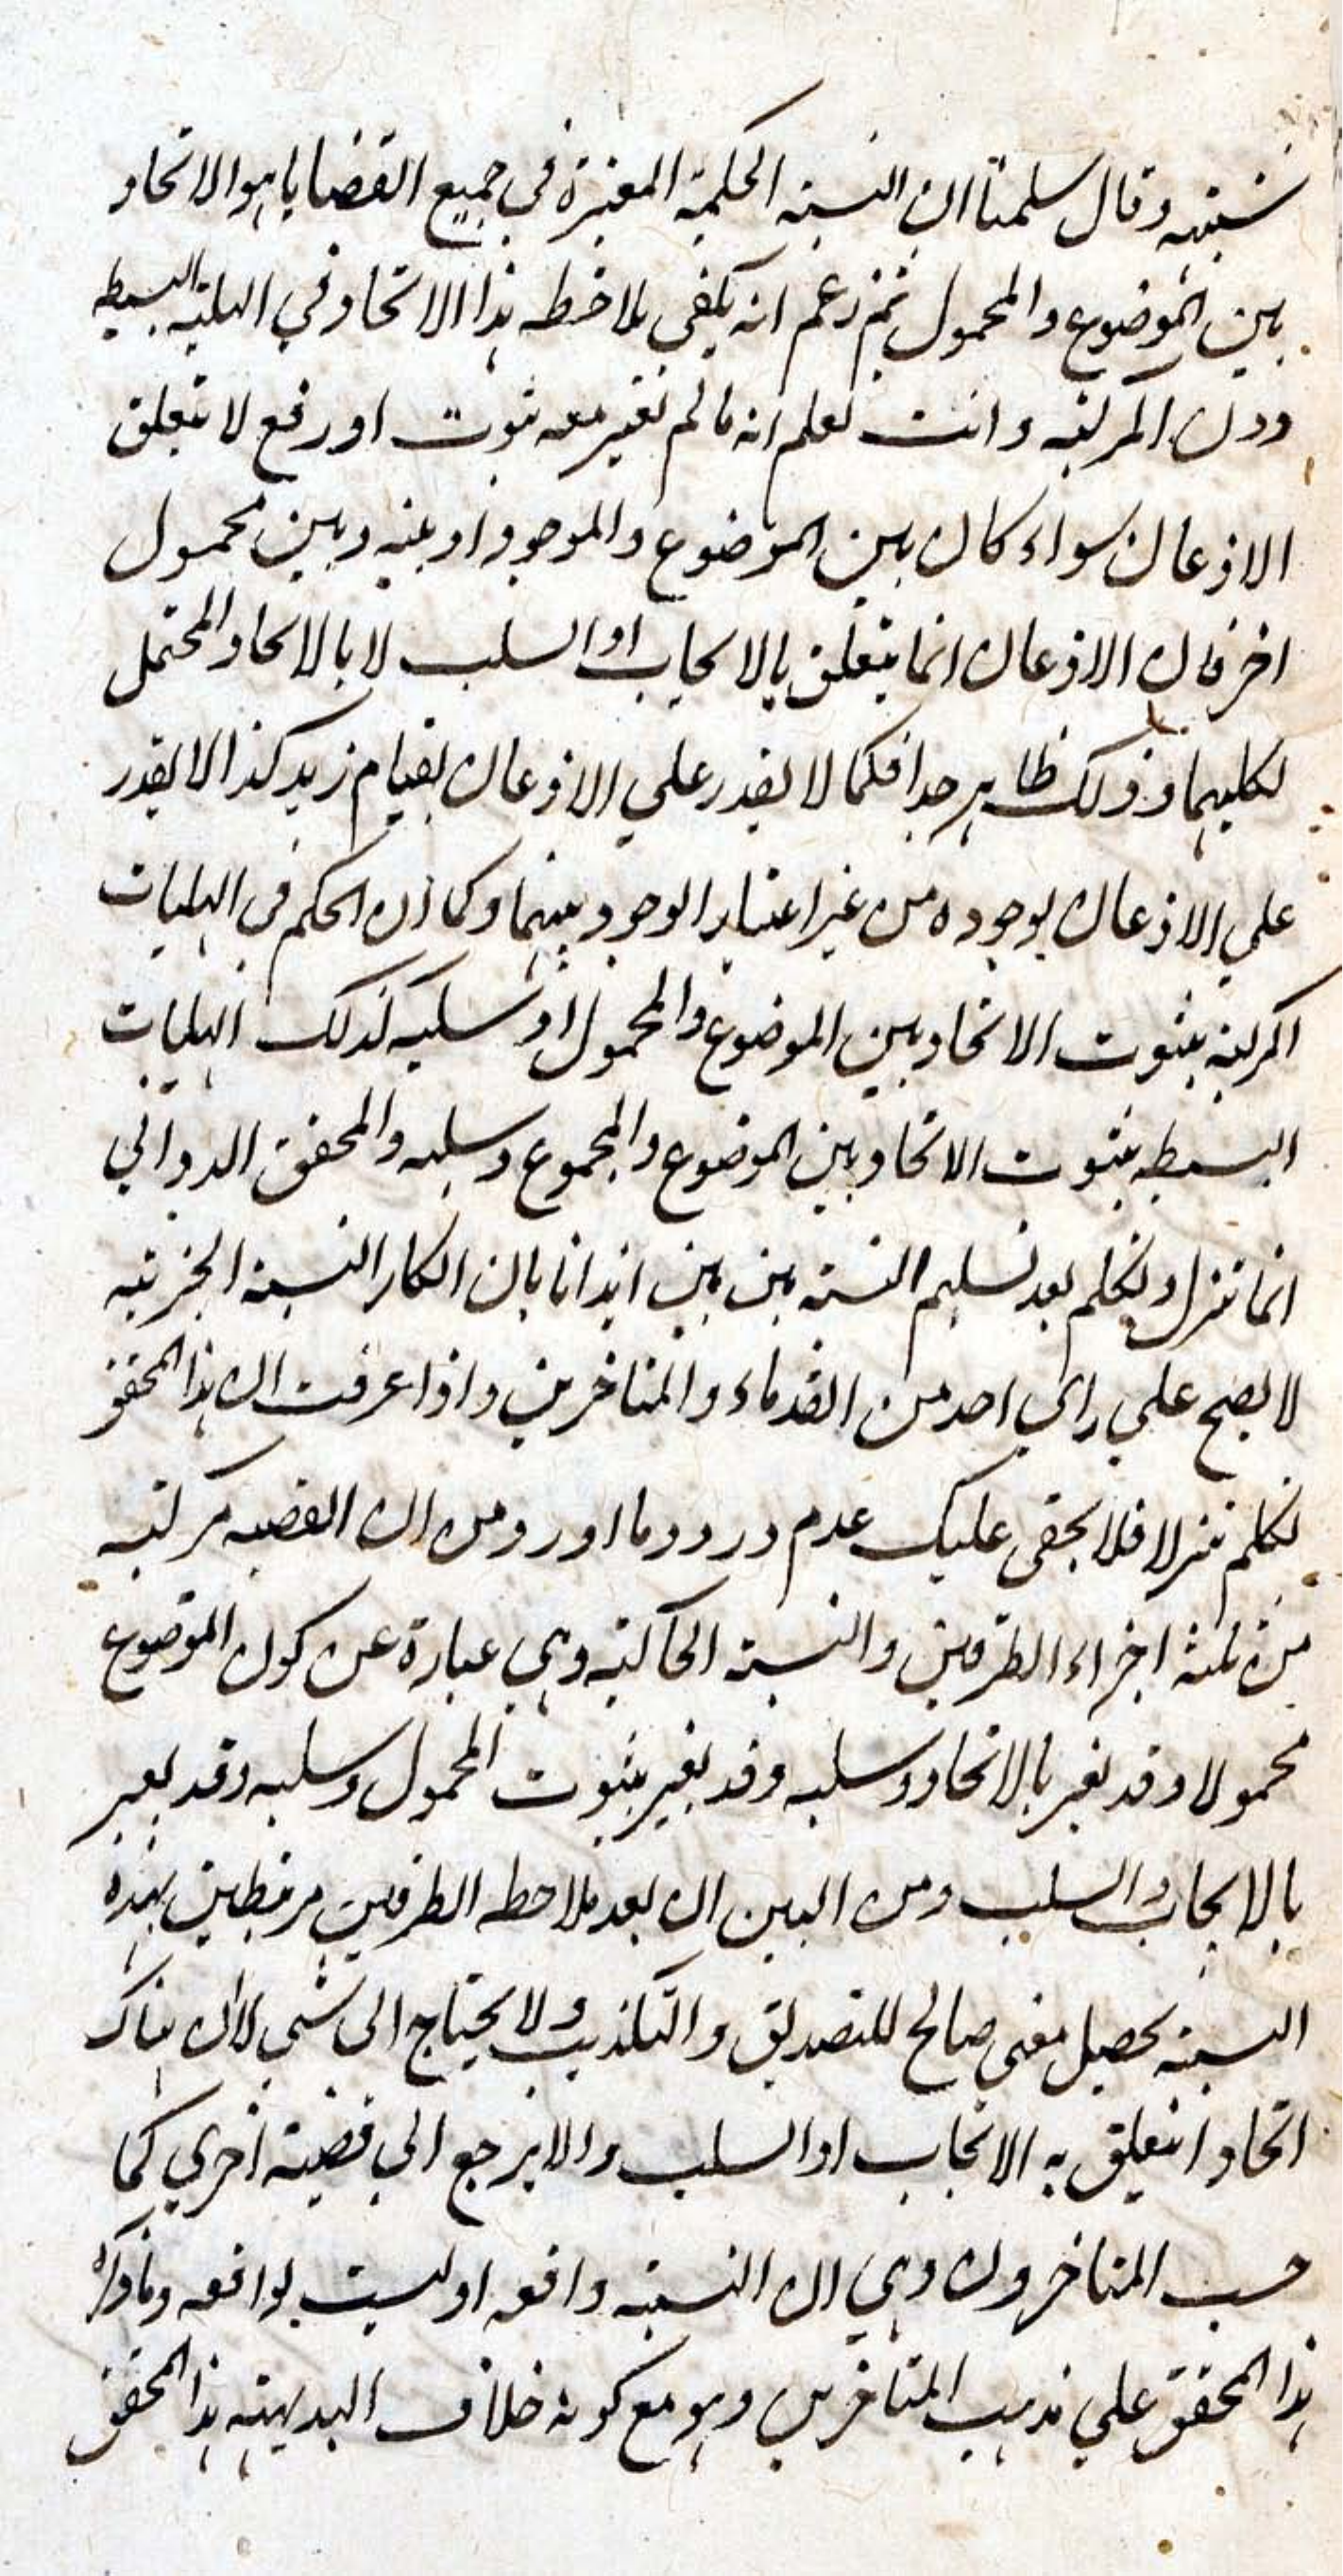 نسبته وقال سلمنا ان النسبة الحكمية المعتبرة في جميع القضايا هو الاتحاد
بين الموضوع والمحمول ثم زعم انه يكفي ملاحظه هذا الاتحاد في الهلية البسيطه
دون المركبه وانت تعلم انه ما لم تعتبر معه ثبوت او رفع لا يتعلق
الاذعان سواء كان بين الموضوع والموجود او بينه وبين محمول
اخر فان الاذعان انما يتعلق بالايجاب او السلب لا بالاتحاد المحتمل
لكليهما وذلك ظاهر جدا فكما لا يقدر علي الاذعان بقيام زيد كذا لا يقدر
علي الاذعان بوجوده من غير اعتبار الوجود بينهما وكما ان الحكم في الهليات
المركبة بثبوت الاتحاد بين الموضوع والمحمول او سلبه كذلك الهليات
البسيطه بثبوت الاتحاد بين الموضوع والمجموع وسلبه والمحقق الدواني
انما تنزل وتكلم بعد تسليم النسبة بين بين ايذانا بان انكار النسبة الخبرية
لا يصح علي راي احد من القدماء والمتاخرين واذا عرفت ان هذا المحقق
تكلم تنزلا فلا يخفى عليك عدم ورود ما اورد ومن ان القضيه مركبه
من ثلثة اجزاء الطرفين والنسبة الحاكية وهي عبارة عن كون الموضوع
محمولا وقد يعبر بالاتحاد وسلبه وقد يعبر بثبوت المحمول وسلبه وقد يعبر
بالايجاب والسلب ومن البين ان بعد ملاحظه الطرفين مرتبطين بهذه
النسبة يحصل معنى صالح للتصديق والتكذيب ولا يحتاج الى شي لان هناك
اتحادا تعلق به الايجاب او السلب والا يرجع الي قضية اخري كما
حسب المتاخرون وهي ان النسبة واقعه او ليست بواقعه وما ذكره
هذا المحقق علي مذهب المتاخرين وهو مع كونه خلاف البديهة هذا المحقق